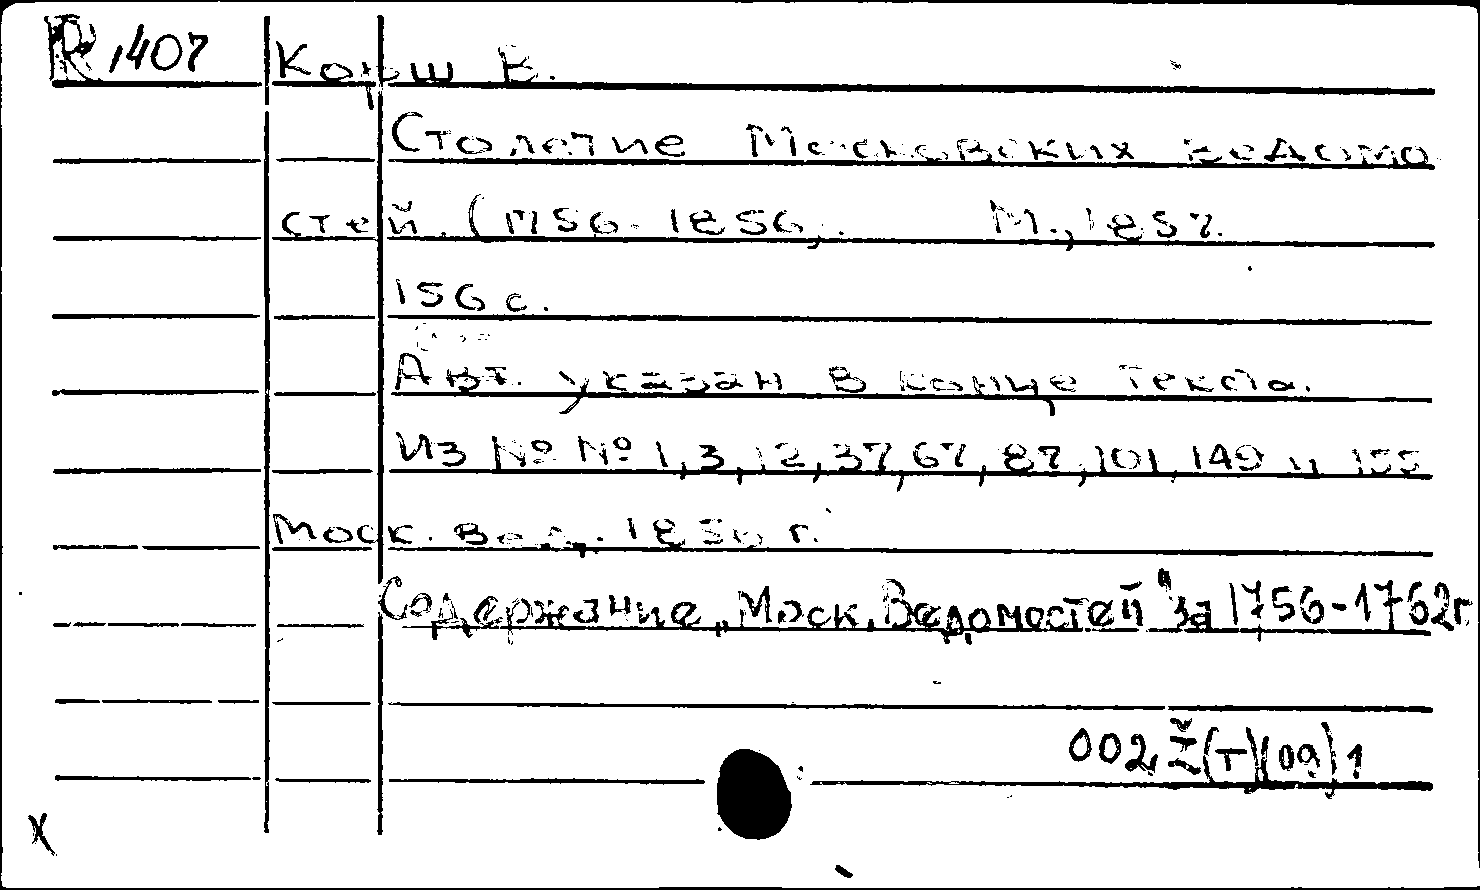 R 1407
Корш В.
Столетие Московских ведомо
стей. (1756-1856). М., 1857.
156 с.
Авт. указан в конце текста.
Из №№ 1, 3, 12, 37, 67, 87, 101, 149 и 155
Моск. вед. 1856 г.
Содержание „Моск. Ведомостей" за 1756-1762г.
002 Ž(T)(09)1
X